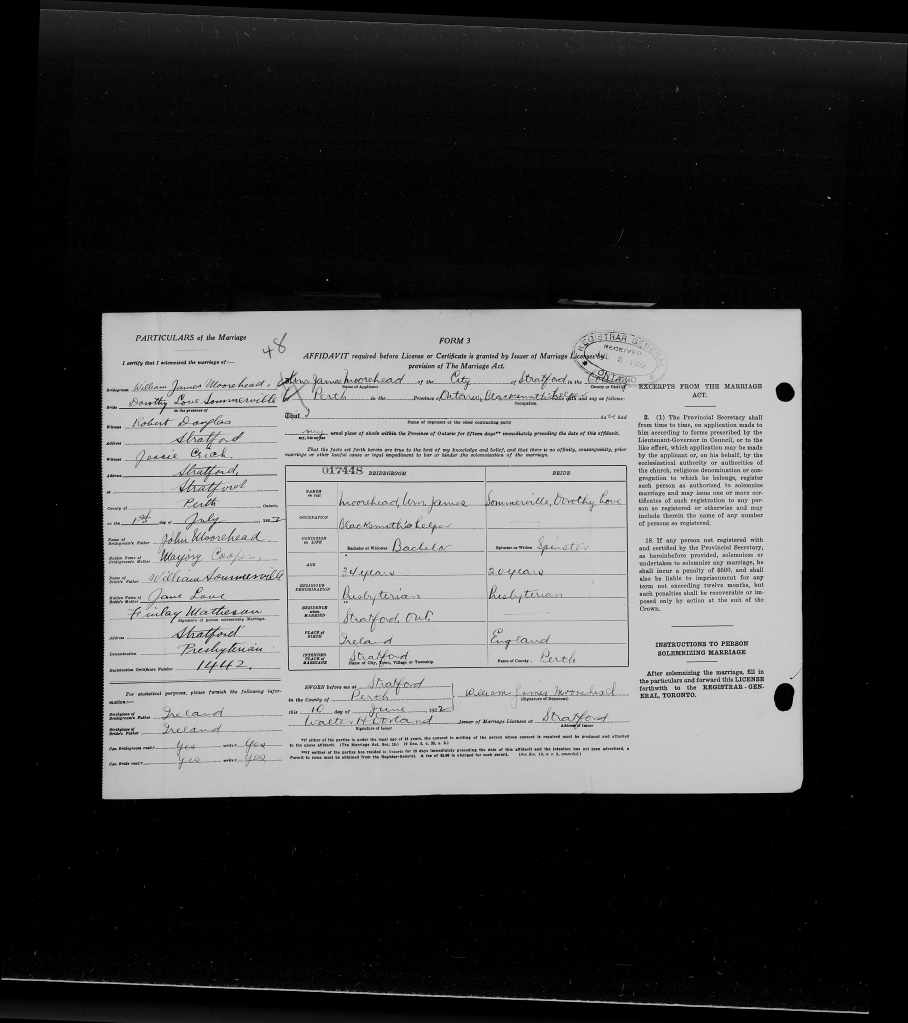 PARTICULARS of the Marriage
48
I certify that I solemnized the marriage of:—
Bridegroom William James Moorehead
Bride Dorothy Love Sommerville
in the presence of
Witness Robert Douglas
Address Stratford
Witness Jessie Crich
Address Stratford,
at Stratford
County of Perth Ontario,
on the 1st day of July
Name of Bridegroom's Father John Moorehead
Maiden Name of Bridegroom's Mother Cooper
Name of Bride's Father William Sommerville
Maiden Name of Bride's Mother Jane Love
Finlay Matheson
Signature of person solemnizing Marriage.
Address Stratford
Denomination Presbyterian
Registration Certificate Number 1442.
For statistical purposes, please furnish the following information:—
Birthplace of Bridegroom's Father Ireland
Birthplace of Bride's Father Ireland
Can Bridegroom read? Yes write Yes
Can Bride read? Yes write Yes
FORM 3
AFFIDAVIT required before License or Certificate is granted by Issuer of Marriage Licenses by
provision of The Marriage Act.
REGISTRAR GENERAL
RECEIVED
ONTARIO
James Moorehead of the City of Stratford in the County
Name of Applicant
County or District
Perth in the Province of Ontario, Blacksmith's helper and say as follows:
Occupation.
That
Name of deponent or the other contracting party
my usual place of abode within the Province of Ontario for fifteen days** immediately preceding the date of this affidavit.
my, his or her
That the facts set forth herein are true to the best of my knowledge and belief, and that there is no affinity, consanguinity, prior
marriage or other lawful cause or legal impediment to bar or hinder the solemnization of the marriage.
017448 BRIDEGROOM BRIDE
NAMES in full Moorehead, Wm. James Sommerville, Dorothy Love
OCCUPATION Blacksmith's helper
CONDITION in LIFE Bachelor or Widower Bachelor Spinster or Widow Spinster
AGE 24 years 20 years
RELIGIOUS DENOMINATION Presbyterian Presbyterian
RESIDENCE when MARRIED Stratford, Ont.
PLACE of BIRTH Ireland England
INTENDED PLACE of MARRIAGE Stratford Perth
Name of City, Town, Village or Township Name of County
SWORN before me at Stratford
in the County of Perth
William James Moorehead
(Signature of Deponent)
this 10 day of June 192
Walter H Dorland Issuer of Marriage Licenses at Stratford
Signature of Issuer Address of Issuer
*If either of the parties is under the legal age of 18 years, the consent in writing of the person whose consent is required must be produced and attached
to the above affidavit. (The Marriage Act, Sec. 15.)
**If neither of the parties has resided in Ontario for 15 days immediately preceding the date of this affidavit and the intention has not been advertised, a
Permit to issue must be obtained from the Registrar-General.
EXCERPTS FROM THE MARRIAGE
ACT.
2. (1) The Provincial Secretary shall
from time to time, on application made to
him according to forms prescribed by the
Lieutenant-Governor in Council, or to the
like effect, which application may be made
by the applicant or, on his behalf, by the
ecclesiastical authority or authorities of
the church, religious denomination or con-
gregation to which he belongs, register
such person as authorized to solemnize
marriage and may issue one or more cer-
tificates of such registration to any per-
son so registered or otherwise and may
include therein the name of any number
of persons so registered.
18. If any person not registered with
and certified by the Provincial Secretary,
as hereinbefore provided, solemnizes or
undertakes to solemnize any marriage, he
shall incur a penalty of $500, and shall
also be liable to imprisonment for any
term not exceeding twelve months, but
such penalties shall be recoverable or im-
posed only by action at the suit of the
Crown.
INSTRUCTIONS TO PERSON
SOLEMNIZING MARRIAGE
After solemnizing the marriage, fill in
the particulars and forward this LICENSE
forthwith to the REGISTRAR-GEN-
ERAL, TORONTO.